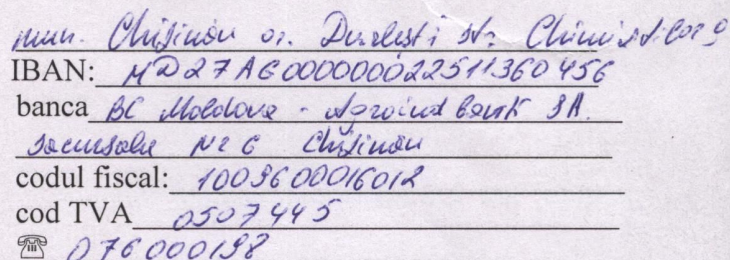 mun. Chișinău or. Durlești str. Chimiștilor 9
IBAN: MD27AG000000022511360456
banca BC Moldova - Agroind bank SA.
Sucursala Nr 6 Chișinău
codul fiscal: 1009600016012
cod TVA 0507445
☎ 076000198